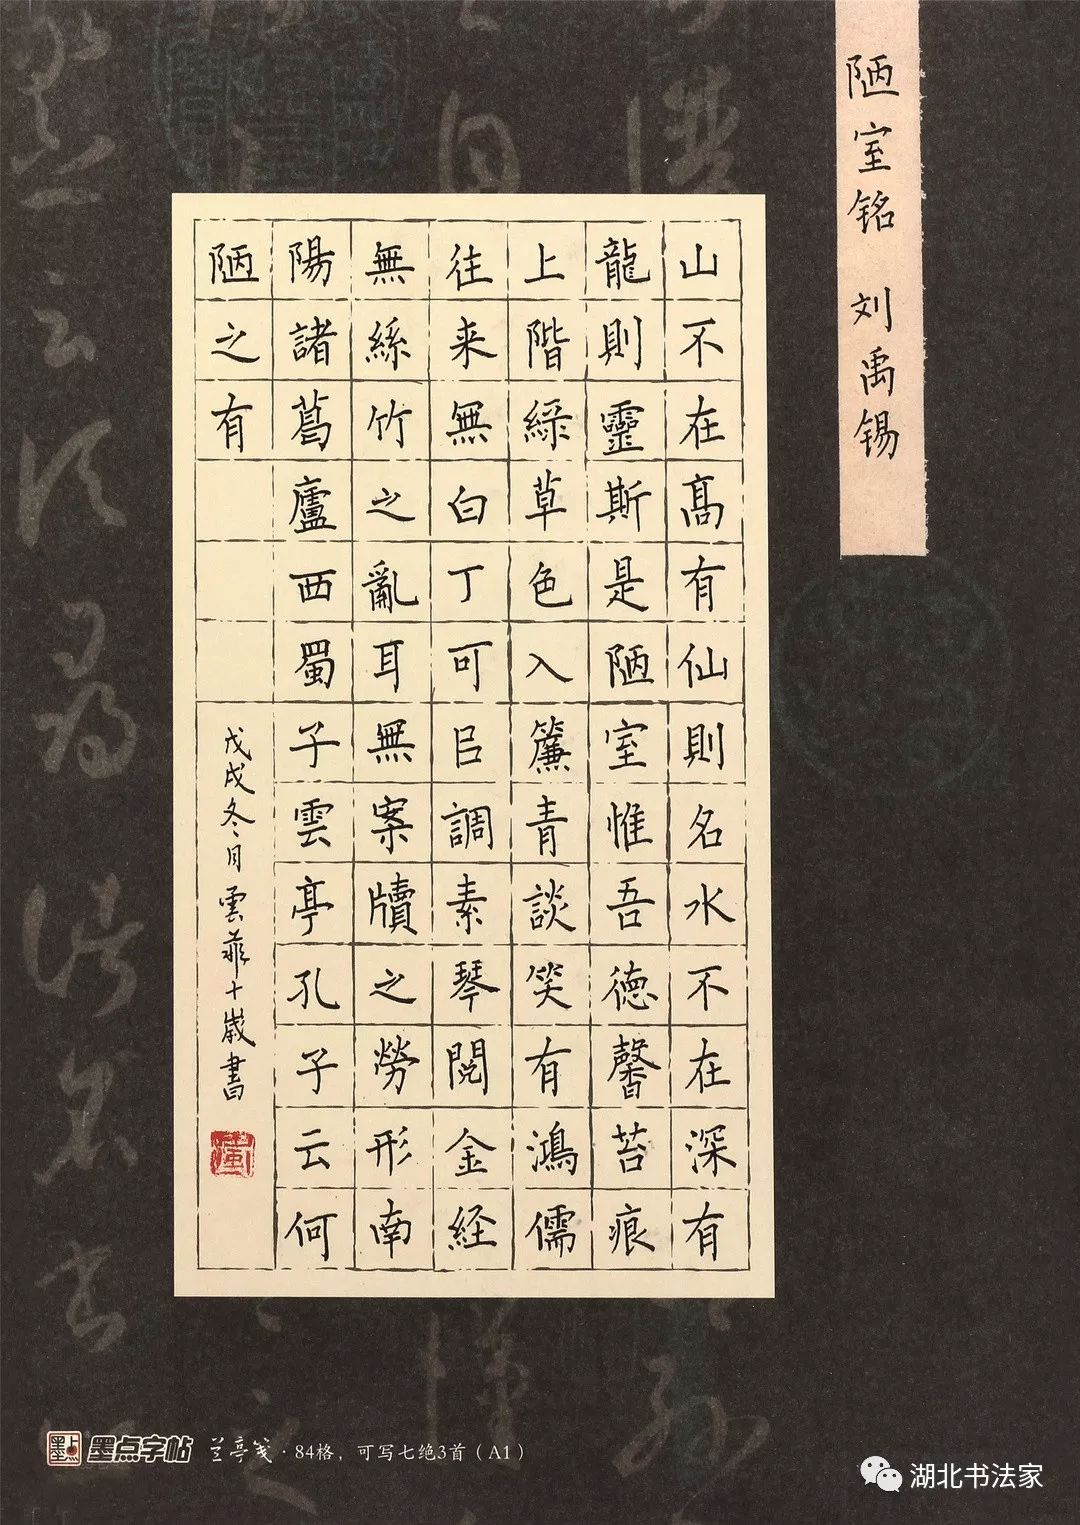 陋室铭 刘禹锡
山不在高有仙則名水不在深有
龍則靈斯是陋室惟吾德馨苔痕
上階綠草色入簾青談笑有鴻儒
往来無白丁可㠯調素琴閱金経
無絲竹之亂耳無案牘之勞形南
陽諸葛廬西蜀子雲亭孔子云何
陋之有
戊戌冬月雲菲十歲書
墨点字帖 兰亭笺·84格，可写七绝3首（A1）
湖北书法家